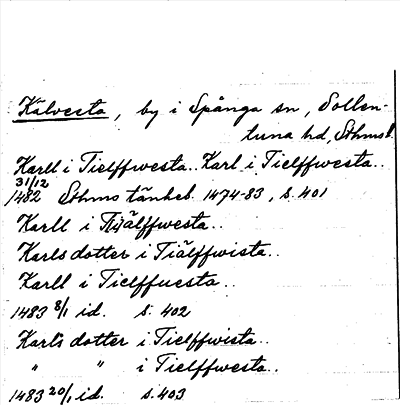 Kälvesta, by i Spånga sn, Sollen-
tuna hd, Sthms l.
Karll i Tielffwesta.. Karl i Tielffwesta..
31/12
1482 Sthms tänkeb. 1474-83, s. 401
Karll i Tiälffwesta..
Karlsdotter i Tiälffwista..
Karll i Tielffuesta..
1483 8/1 id. s. 402
Karls dotter i Tielffwista..
" " i Tielffwesta..
1483 20/1 id. s. 403